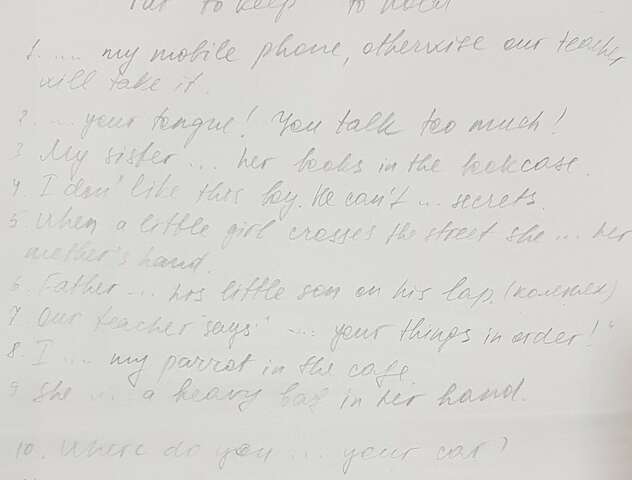 Put to keep to hold
1. .... my mobile phone, otherwise our teacher
will take it.
2. ... your tongue! You talk too much!
3 My sister ... her books in the bookcase.
4. I don't like this boy. He can't ... secrets.
5. When a little girl crosses the street she ... her
mother's hand.
6. Father ... his little son on his lap. (коленях)
7. Our teacher says "... your things in order!"
8. I .... my parrot in the cage.
9. She .... a heavy bag in her hand.
10. Where do you .... your car?